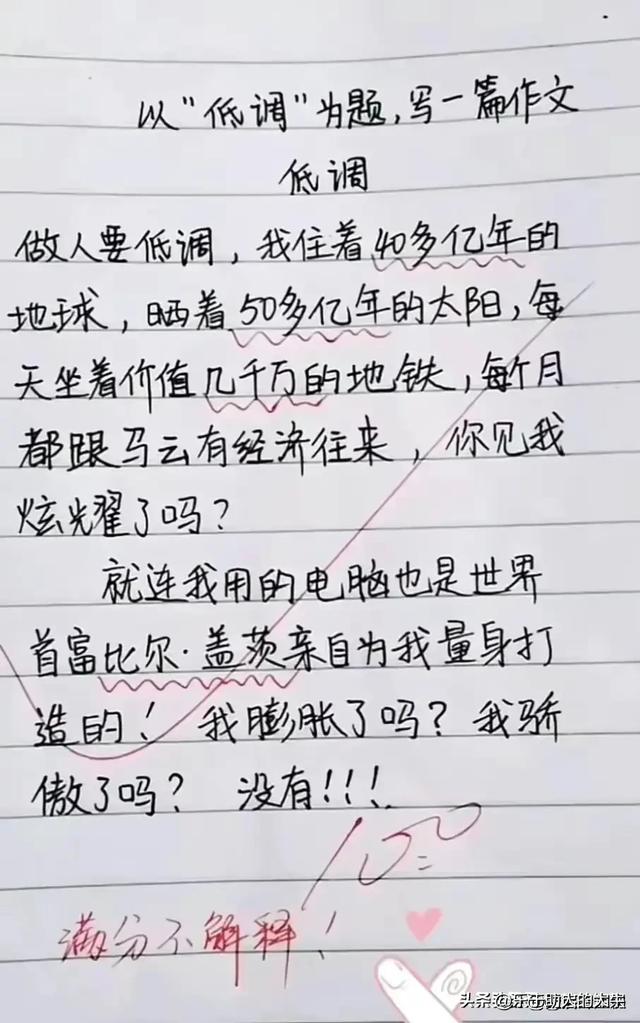 以"低调"为题,写一篇作文
低调
做人要低调，我住着40多亿年的
地球，晒着50多亿年的太阳,每
天坐着价值几千万的地铁，每个月
都跟马云有经济往来，你见我
炫耀了吗？
就连我用的电脑也是世界
首富比尔·盖茨亲自为我量身打
造的！我膨胀了吗？我骄
傲了吗？没有!!!
100
满分不解释！
头条